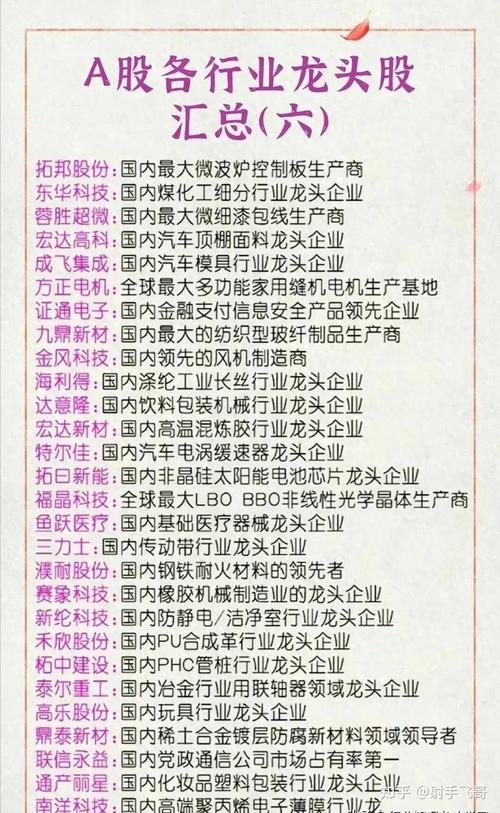 A股各行业龙头股
汇总(六)
拓邦股份:国内最大微波炉控制板生产商
东华科技:国内煤化工细分行业龙头企业
蓉胜超微:国内最大微细漆包线生产商
宏达高科:国内汽车顶棚面料龙头企业
成飞集成:国内汽车模具行业龙头企业
方正电机:全球最大多功能家用缝机电机生产基地
证通电子:国内金融支付信息安全产品领先企业
九鼎新材:国内最大的纺织型玻纤制品生产商
金风科技:国内领先的风机制造商
海利得:国内涤纶工业长丝行业龙头企业
达意隆:国内饮料包装机械行业龙头企业
宏达新材:国内高温混炼胶行业龙头企业
特尔佳:国内汽车电涡缓速器龙头企业
拓日新能:国内非晶硅太阳能电池芯片龙头企业
福晶科技:全球最大LBO BBO非线性光学晶体生产商
鱼跃医疗:国内基础医疗器械龙头企业
三力士:国内传动带行业龙头企业
濮耐股份:国内钢铁耐火材料的领先者
赛象科技:国内橡胶机械制造业的龙头企业
新纶科技:国内防静电/洁净室行业龙头企业
禾欣股份:国内PU合成革行业龙头企业
柘中建设:国内PHC管桩行业龙头企业
泰尔重工:国内冶金行业用联轴器领域龙头企业
高乐股份:国内玩具行业龙头企业
鼎泰新材:国内稀土合金镀层防腐新材料领域领导者
联信永益:国内党政通信公司市场占有率第一
通产丽星:国内化妆品塑料包装行业龙头企业
南洋科技:国内高端聚丙烯电子薄膜行业龙
知乎 @射手飞哥